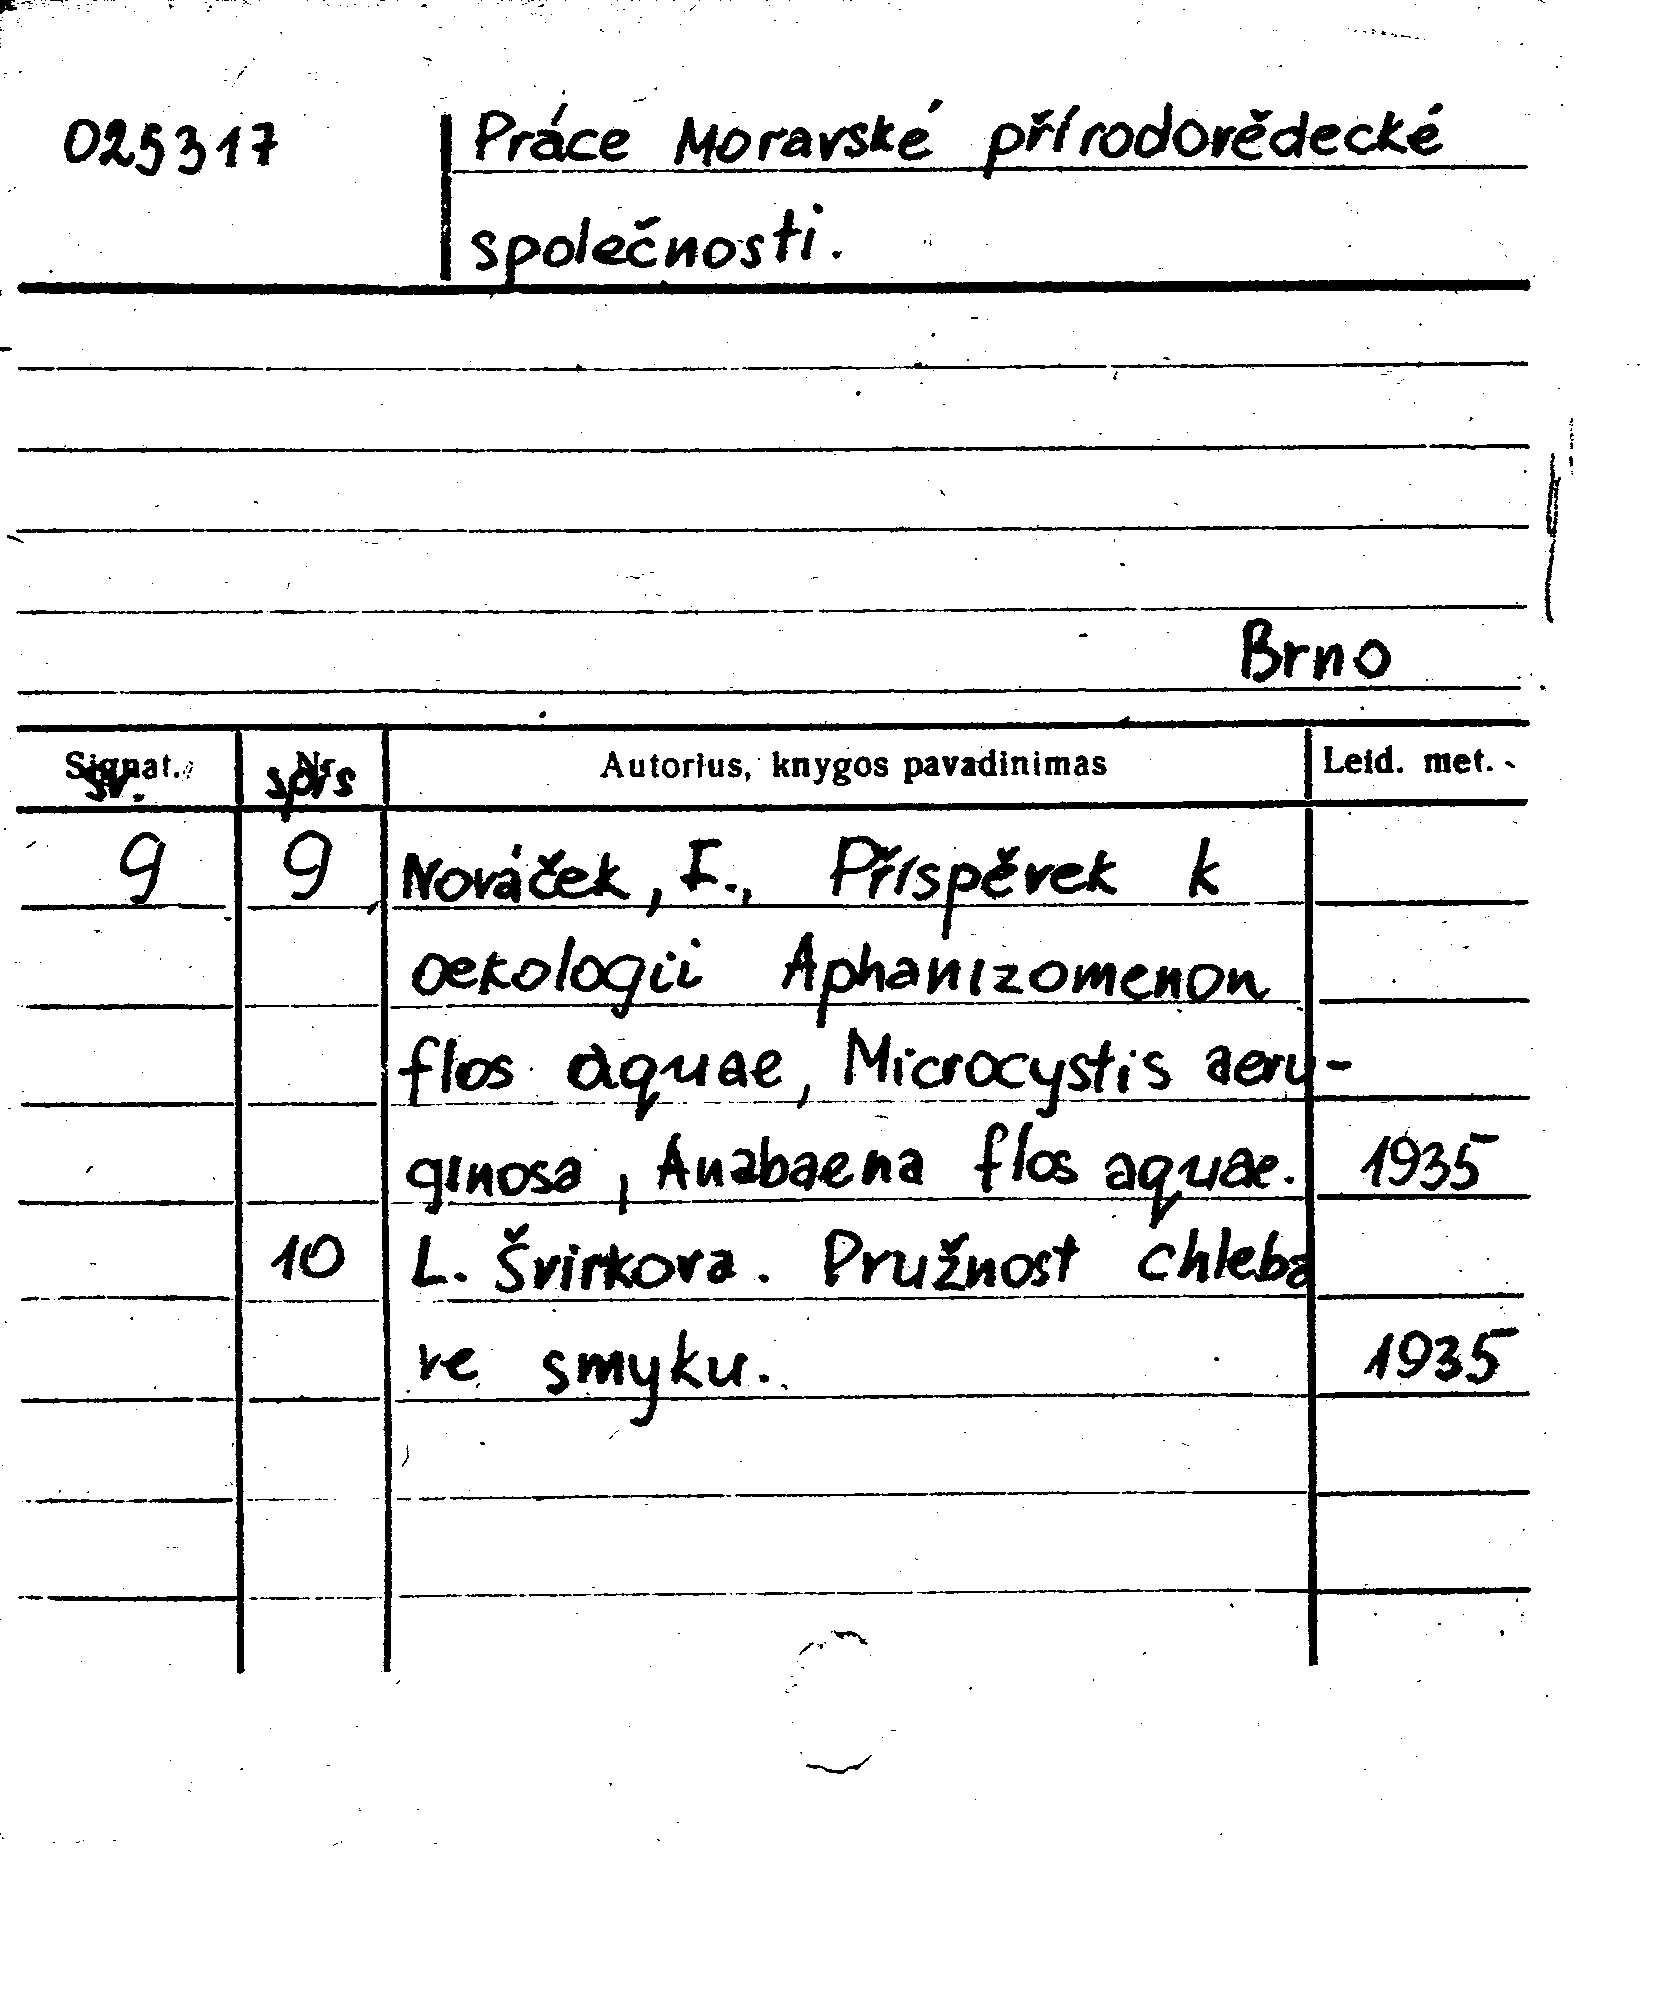 025317 Práce Moravské přírodovědecké
společnosti.
Brno
Signat. Nr. Autorius, knygos pavadinimas Leid. met.
sv. sprs
9 9 Nováček, F., Příspěvek k
oekologii Aphanizomenon
flos aquae, Microcystis aeru-
ginosa, Anabaena flos aquae. 1935
10 L. Švirkova. Pružnost chleba
ve smyku. 1935